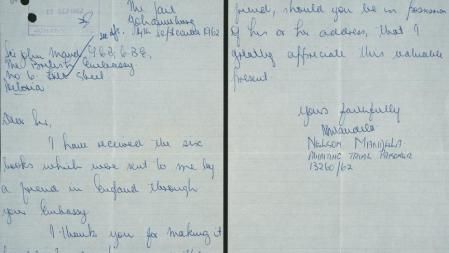 The Fort
Johannesburg
September 1962
Sir John Maud G.C.B., C.B.E,
The British Embassy
No 6. Street
Pretoria
Dear Sir,
I have received the six
books which were sent to me by
a friend in England through
your Embassy.
I thank you for making it
friend, should you be in possession
of his or her address, that I
greatly appreciate this valuable
present.
Yours faithfully
NMandela
NELSON MANDELA
AWAITING TRIAL PRISONER
13260/62